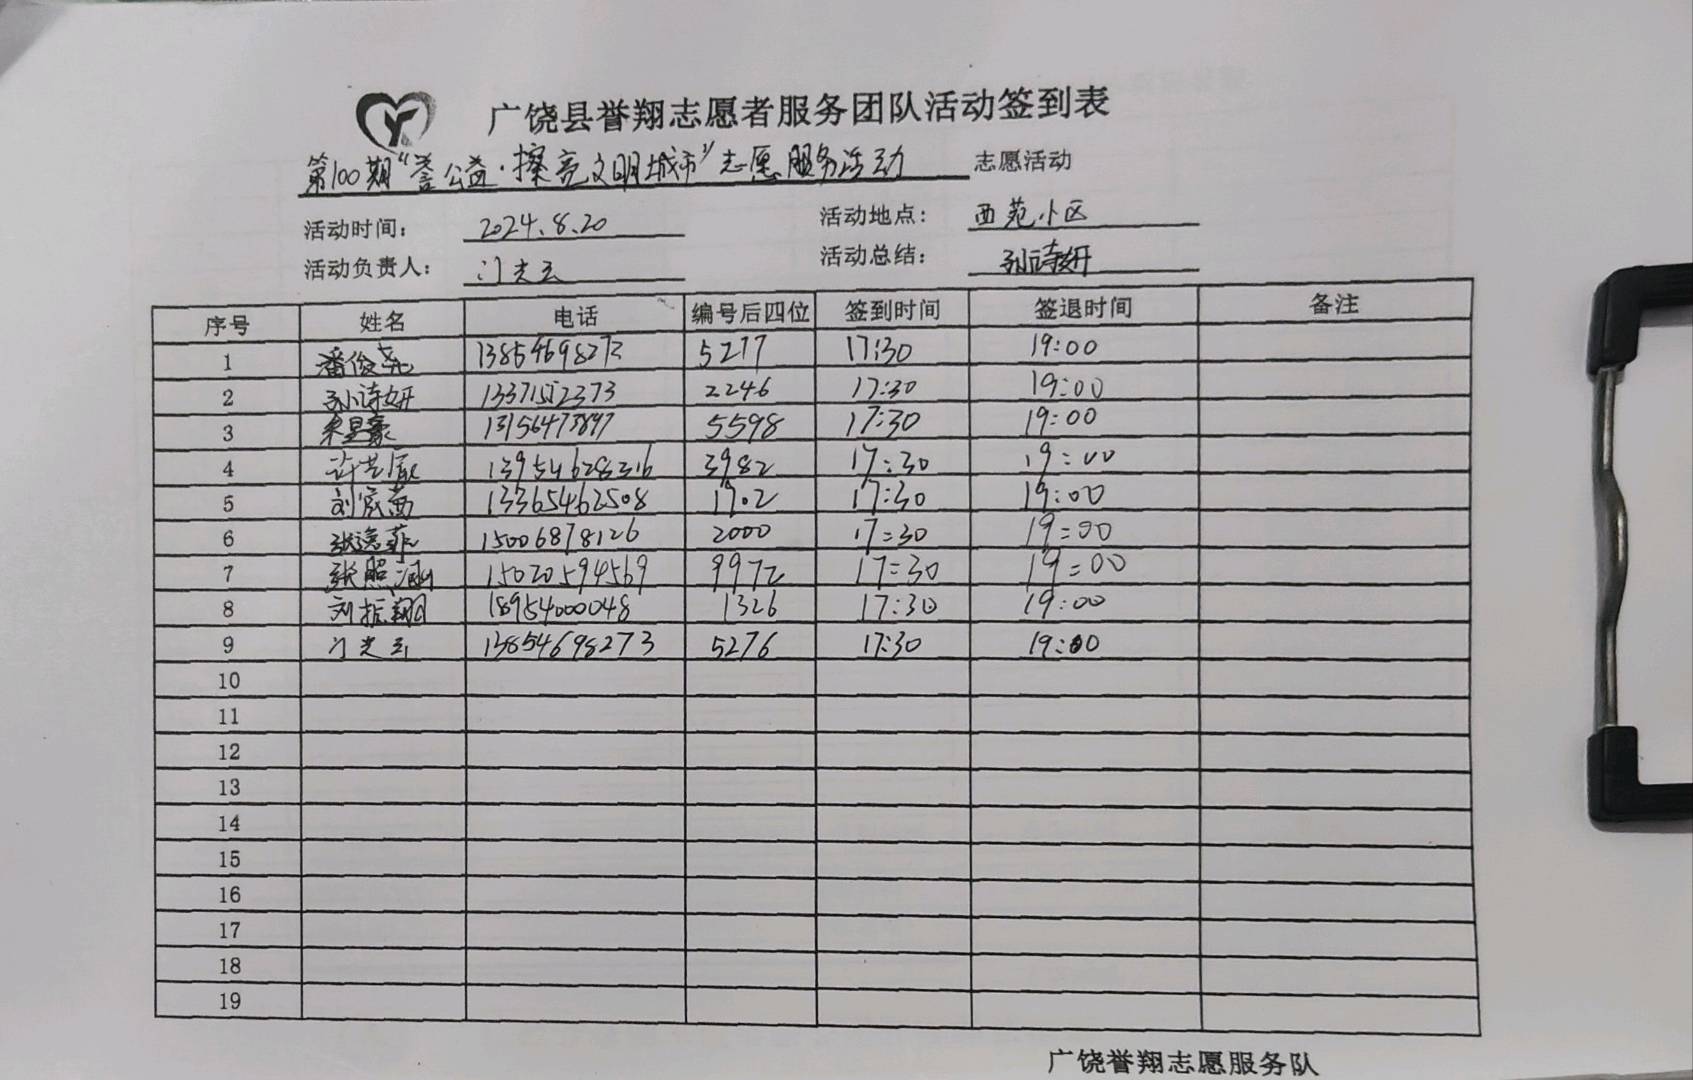 广饶县誉翔志愿者服务团队活动签到表
第100期“誉公益·擦亮文明城市”志愿服务活动 志愿活动
活动时间: 2024.8.20 活动地点: 西苑小区
活动负责人: 门光云 活动总结: 孙诗妍
序号 姓名 电话 编号后四位 签到时间 签退时间 备注
1 潘俊尧 5277 17:30 19:00
2 孙诗妍 13371512373 2246 17:30 19:00
3 5598 17:30 19:00
4 13954628316 3982 17:30 19:00
5 13365462508 1702 17:30 19:00
6 张逸菲 15006878126 2000 17:30 19:00
7 张照涵 15020594569 9972 17:30 19:00
8 刘振翔 18954000048 1326 17:30 19:00
9 门光云 13854698273 5276 17:30 19:00
10
11
12
13
14
15
16
17
18
19
广饶誉翔志愿服务队